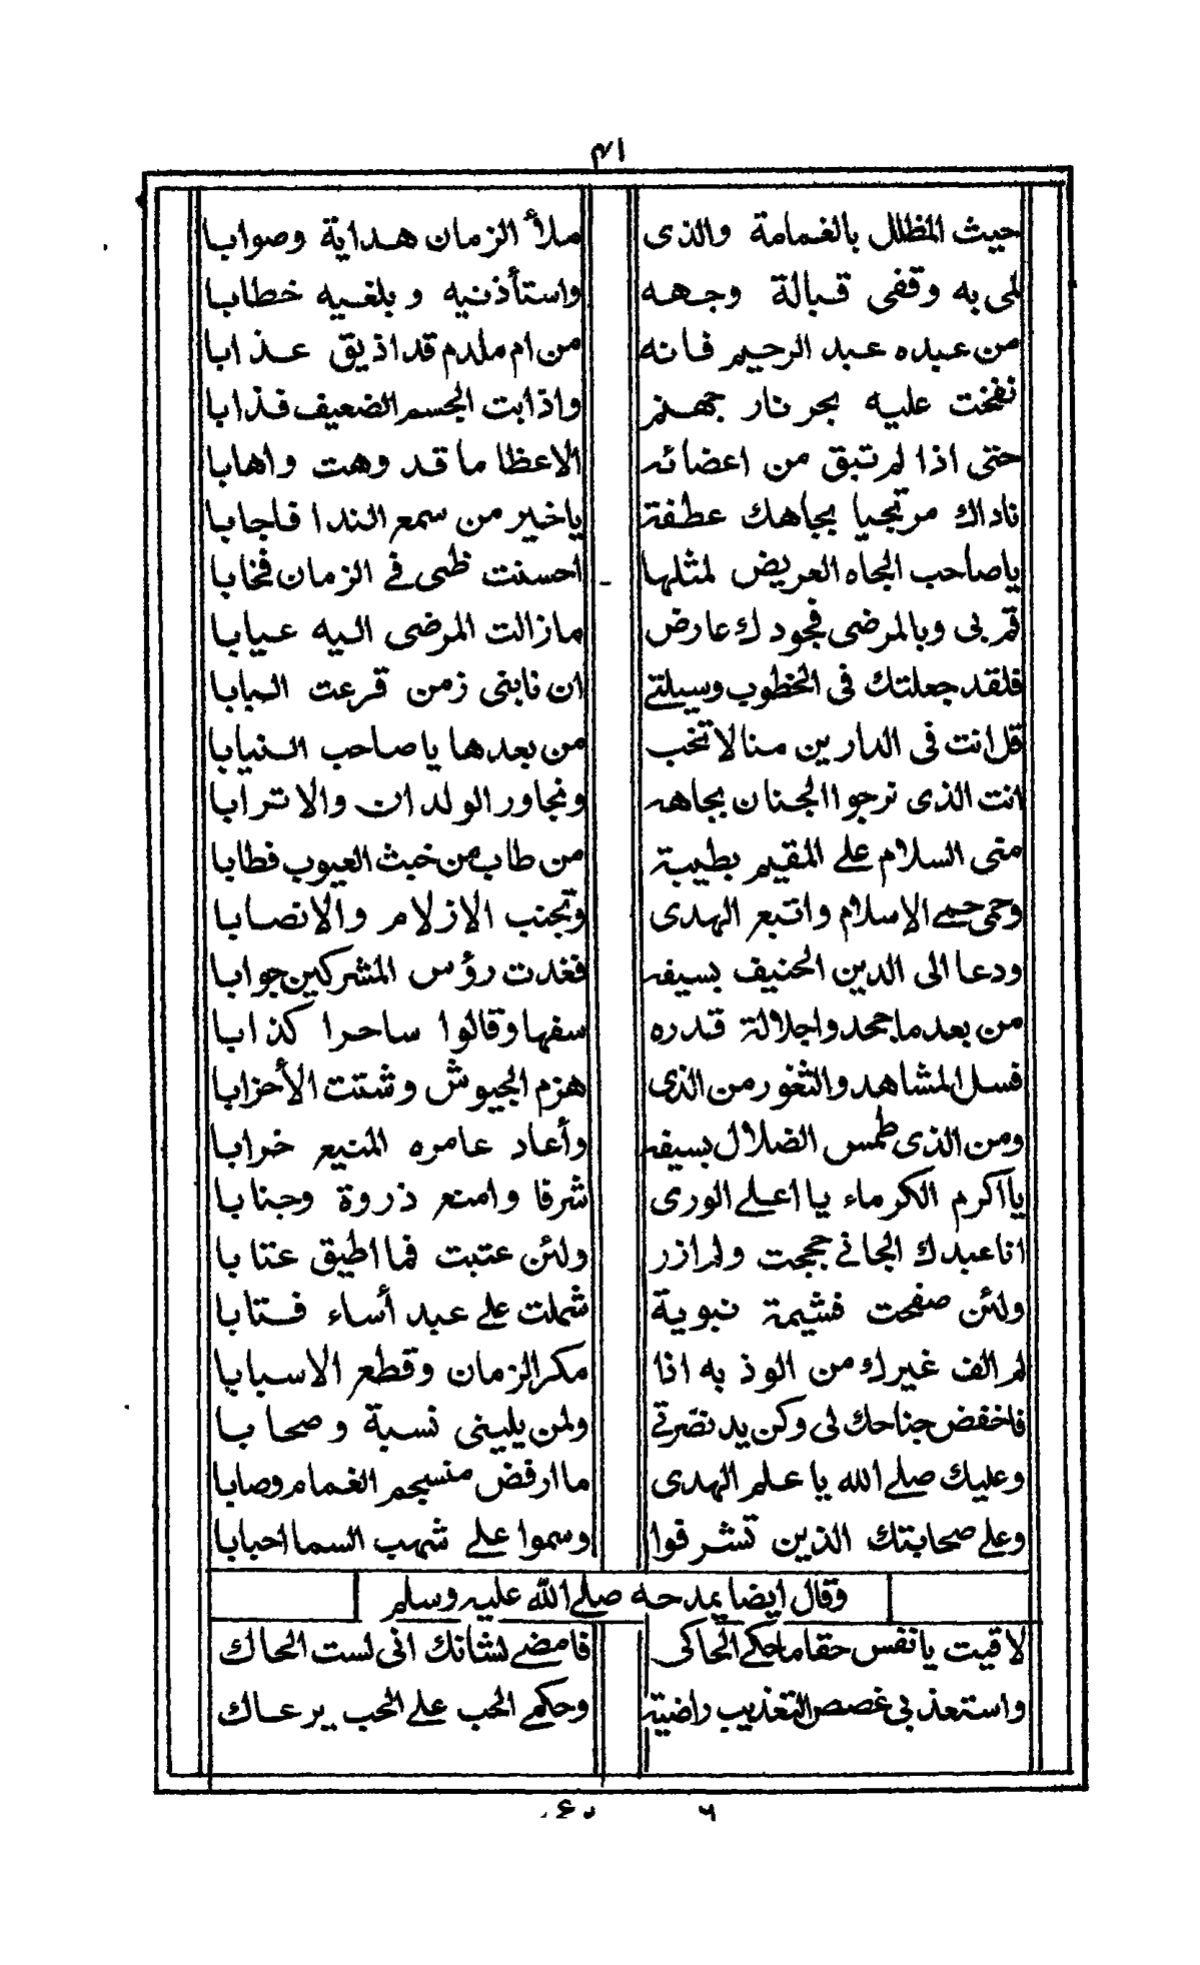 ٤١
حيث المظلل بالغمامة والذى ملأ الزمان هداية وصوابا
لمى به وقفى قبالة وجهه واستأذنيه وبلغيه خطابا
من عبده عبد الرحيم فانه من ام ملدم قد اذيق عذابا
نفخت عليه بحر نار جهنم واذابت الجسم الضعيف فذابا
حتى اذا لم تبق من اعضائه الا عظاما قد وهت واهابا
ناداك مرتجيا بجاهك عطفة ياخير من سمع الندا فاجابا
ياصاحب الجاه العريض لمثلها احسنت ظنى في الزمان فخابا
قم بى وبالمرضى فجودك عارض مازالت المرضى اليه عيابا
فلقد جعلتك فى الخطوب وسيلتى ان نابنى زمن قرعت البابا
قل انت فى الدارين منا لا تخب من بعدها ياصاحب النيابا
انت الذى نرجوا الجنان بجاهه ونجاور الولدان والاترابا
منى السلام على المقيم بطيبة من طاب من خبث العيوب فطابا
وحمى حمى الإسلام واتبع الهدى وتجنب الازلام والانصابا
ودعا الى الدين الحنيف بسيفه فغدت رؤس المشركين جوابا
من بعد ما جحدوا جلالة قدره سفها وقالوا ساحرا كذابا
فسل المشاهد والثغور من الذى هزم الجيوش وشتت الأحزابا
ومن الذى طمس الضلال بسيفه وأعاد عامره المنيع خرابا
يااكرم الكرماء يا اعلى الورى شرفا وامنع ذروة وجنابا
انا عبدك الجانى حججت ولم ازر ولئن عتبت فما اطيق عتابا
ولئن صفحت فشيمة نبوية شملت على عبد أساء فتابا
لم الف غيرك من الوذ به اذا مكر الزمان وقطع الاسبابا
فاخفض جناحك لى وكن يد نصرتى ولمن يلينى نسبة وصحابا
وعليك صلى الله يا علم الهدى ما ارفض منسجم الغمام وصابا
وعلى صحابتك الذين تشرفوا وسموا على شهب السما احبابا
وقال ايضا يمدحه صلى الله عليه وسلم
لاقيت يانفس حقا ماحكى الحاكى فامضى لشانك انى لست الحاك
واستعذبى غصص التعذيب راضية وحكمى الحب على الحب يرعاك